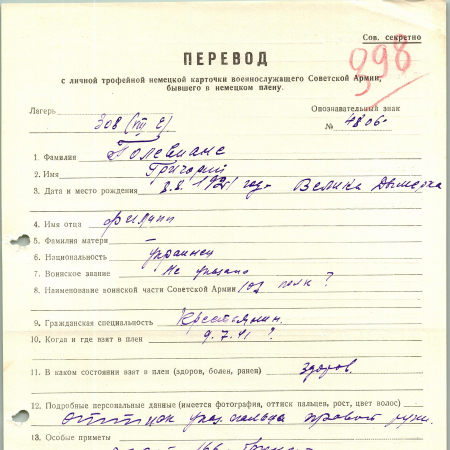 Сов. секретно
998
ПЕРЕВОД
с личной трофейной немецкой карточки военнослужащего Советской Армии,
бывшего в немецком плену.
Лагерь 308 (VIII E)
Опознавательный знак
№ 4806
1. Фамилия
2. Имя Григорий
3. Дата и место рождения 8.8. 1921 год Велика
4. Имя отца Филипп
5. Фамилия матери —
6. Национальность украинец
7. Воинское звание Не указано
8. Наименование воинской части Советской Армии 101 полк ?
9. Гражданская специальность Крестьянин.
10. Когда и где взят в плен 9.7.41 ?
11. В каком состоянии взят в плен (здоров, болен, ранен) здоров.
12. Подробные персональные данные (имеется фотография, оттиск пальцев, рост, цвет волос)
оттиск указ. пальца правой руки.
13. Особые приметы